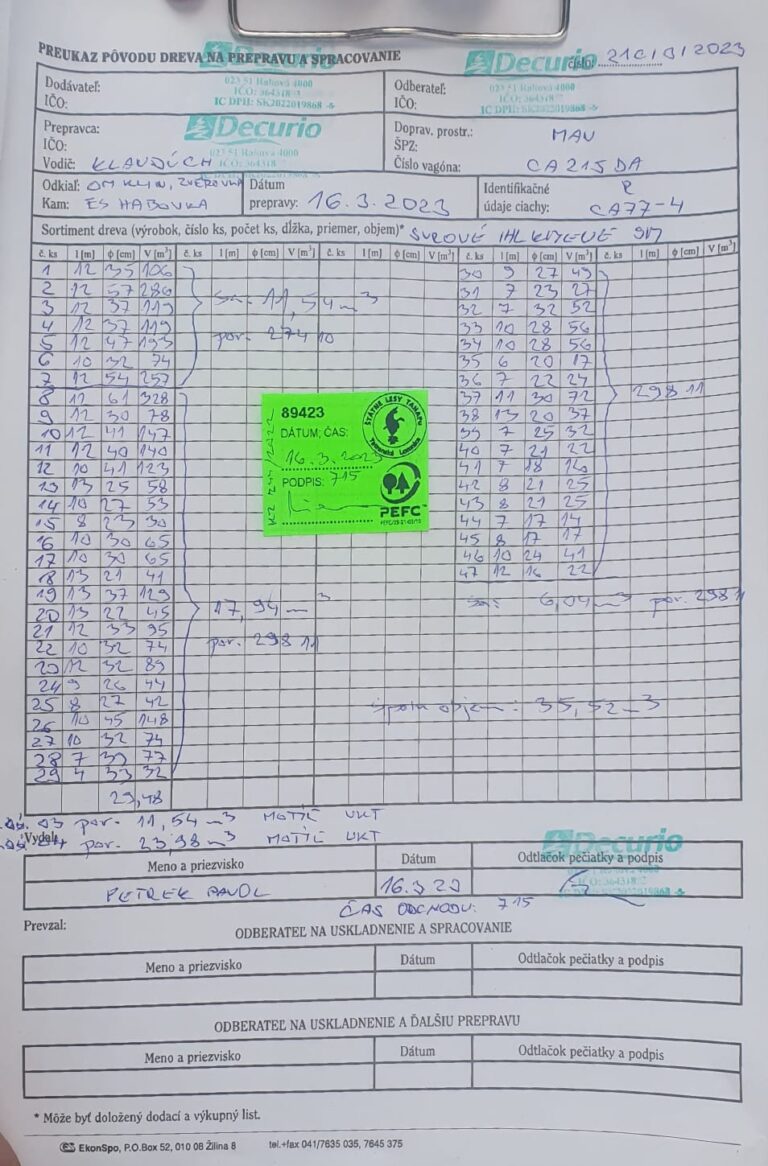 PREUKAZ PÔVODU DREVA NA PREPRAVU A SPRACOVANIE
Decurio
číslo:
Dodávateľ:
IČO:
023 51 Raková 4000
IČ DPH: SK2022019868
Odberateľ:
IČO:
IČ DPH: SK2022019868
Prepravca:
IČO:
Decurio
023 51 Raková 4000
Vodič: KLAUDÚCH
Doprav. prostr.: MAN
ŠPZ:
Číslo vagóna: CA215DA
Odkiaľ: OM KLIN, ZVEROVKA
Kam: ES HABOVKA
Dátum
prepravy: 16.3.2023
Identifikačné
údaje ciachy: R
CA77-4
Sortiment dreva (výrobok, číslo ks, počet ks, dĺžka, priemer, objem)* SUROVÉ IHL KMEŇE
č. ks l [m] ϕ [cm] V [m³] č. ks l [m] ϕ [cm] V [m³] č. ks l [m] ϕ [cm] V [m³] č. ks l [m] ϕ [cm] V [m³] č. ks l [m] ϕ [cm] V [m³]
1 12 35 106
2 12 57 286
3 12 37 119
4 12 37 119
5 12 47 193
6 10 32 74
7 12 54 257
11,54 m³
por. 274 10
8 12 61 328
9 12 30 78
10 12 41 147
11 12 40 140
12 10 41 123
13 13 25 58
14 10 27 53
15 8 23 30
16 10 30 65
17 10 30 65
18 13 21 41
19 13 37 129
20 13 22 45
21 12 33 95
22 10 32 74
23 12 32 89
24 9 26 44
25 8 27 42
26 10 45 148
27 10 32 74
28 7 39 77
29 4 33 32
29,48
17,94 m³
por. 298 11
30 9 27 49
31 7 23 27
32 7 32 52
33 10 28 56
34 10 28 56
35 6 20 17
36 7 22 24
37 11 30 72
38 13 20 37
39 7 25 32
40 7 21 22
41 7 18 16
42 8 21 25
43 8 21 25
44 7 17 14
45 8 17 17
46 10 24 41
47 12 16 22
298 11
6,04 m³ por. 298 11
Spolu objem: 35,52 m³
89423
DÁTUM, ČAS:
16.3.2023
PODPIS: 715
ŠTÁTNE LESY TANAPU
Tatranská Lomnica
PEFC
por. 11,54 m³ MOTÍL UKT
por. 23,98 m³ MOTÍL UKT
Vydal:
Meno a priezvisko Dátum Odtlačok pečiatky a podpis
Decurio
PETREK PAVOL 16.3.23
ČAS ODCHODU: 715
Prevzal:
ODBERATEĽ NA USKLADNENIE A SPRACOVANIE
Meno a priezvisko Dátum Odtlačok pečiatky a podpis
ODBERATEĽ NA USKLADNENIE A ĎALŠIU PREPRAVU
Meno a priezvisko Dátum Odtlačok pečiatky a podpis
* Môže byť doložený dodací a výkupný list.
EkonSpo, P.O.Box 52, 010 08 Žilina 8 tel.+fax 041/7635 035, 7645 375